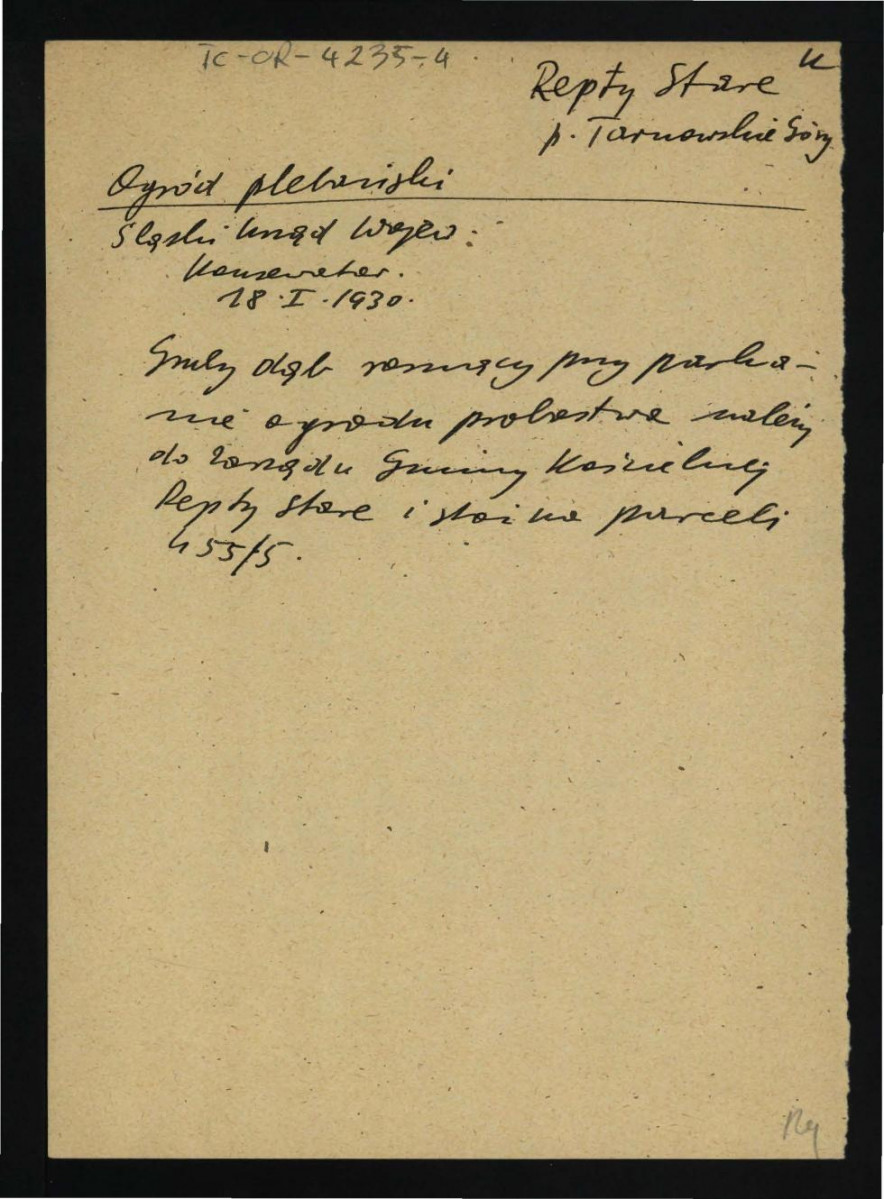 TC-OR-4235-4
Repty Stare
p. Tarnowskie Góry
Ogród plebański
Śląski Urząd Wojew.
Konserwator.
18.I.1930.
Gruby dąb rosnący przy parka-
nie ogrodu probostwa należy
do Zarządu Gminy Kościelnej
Repty Stare i stoi na parceli
455/5.